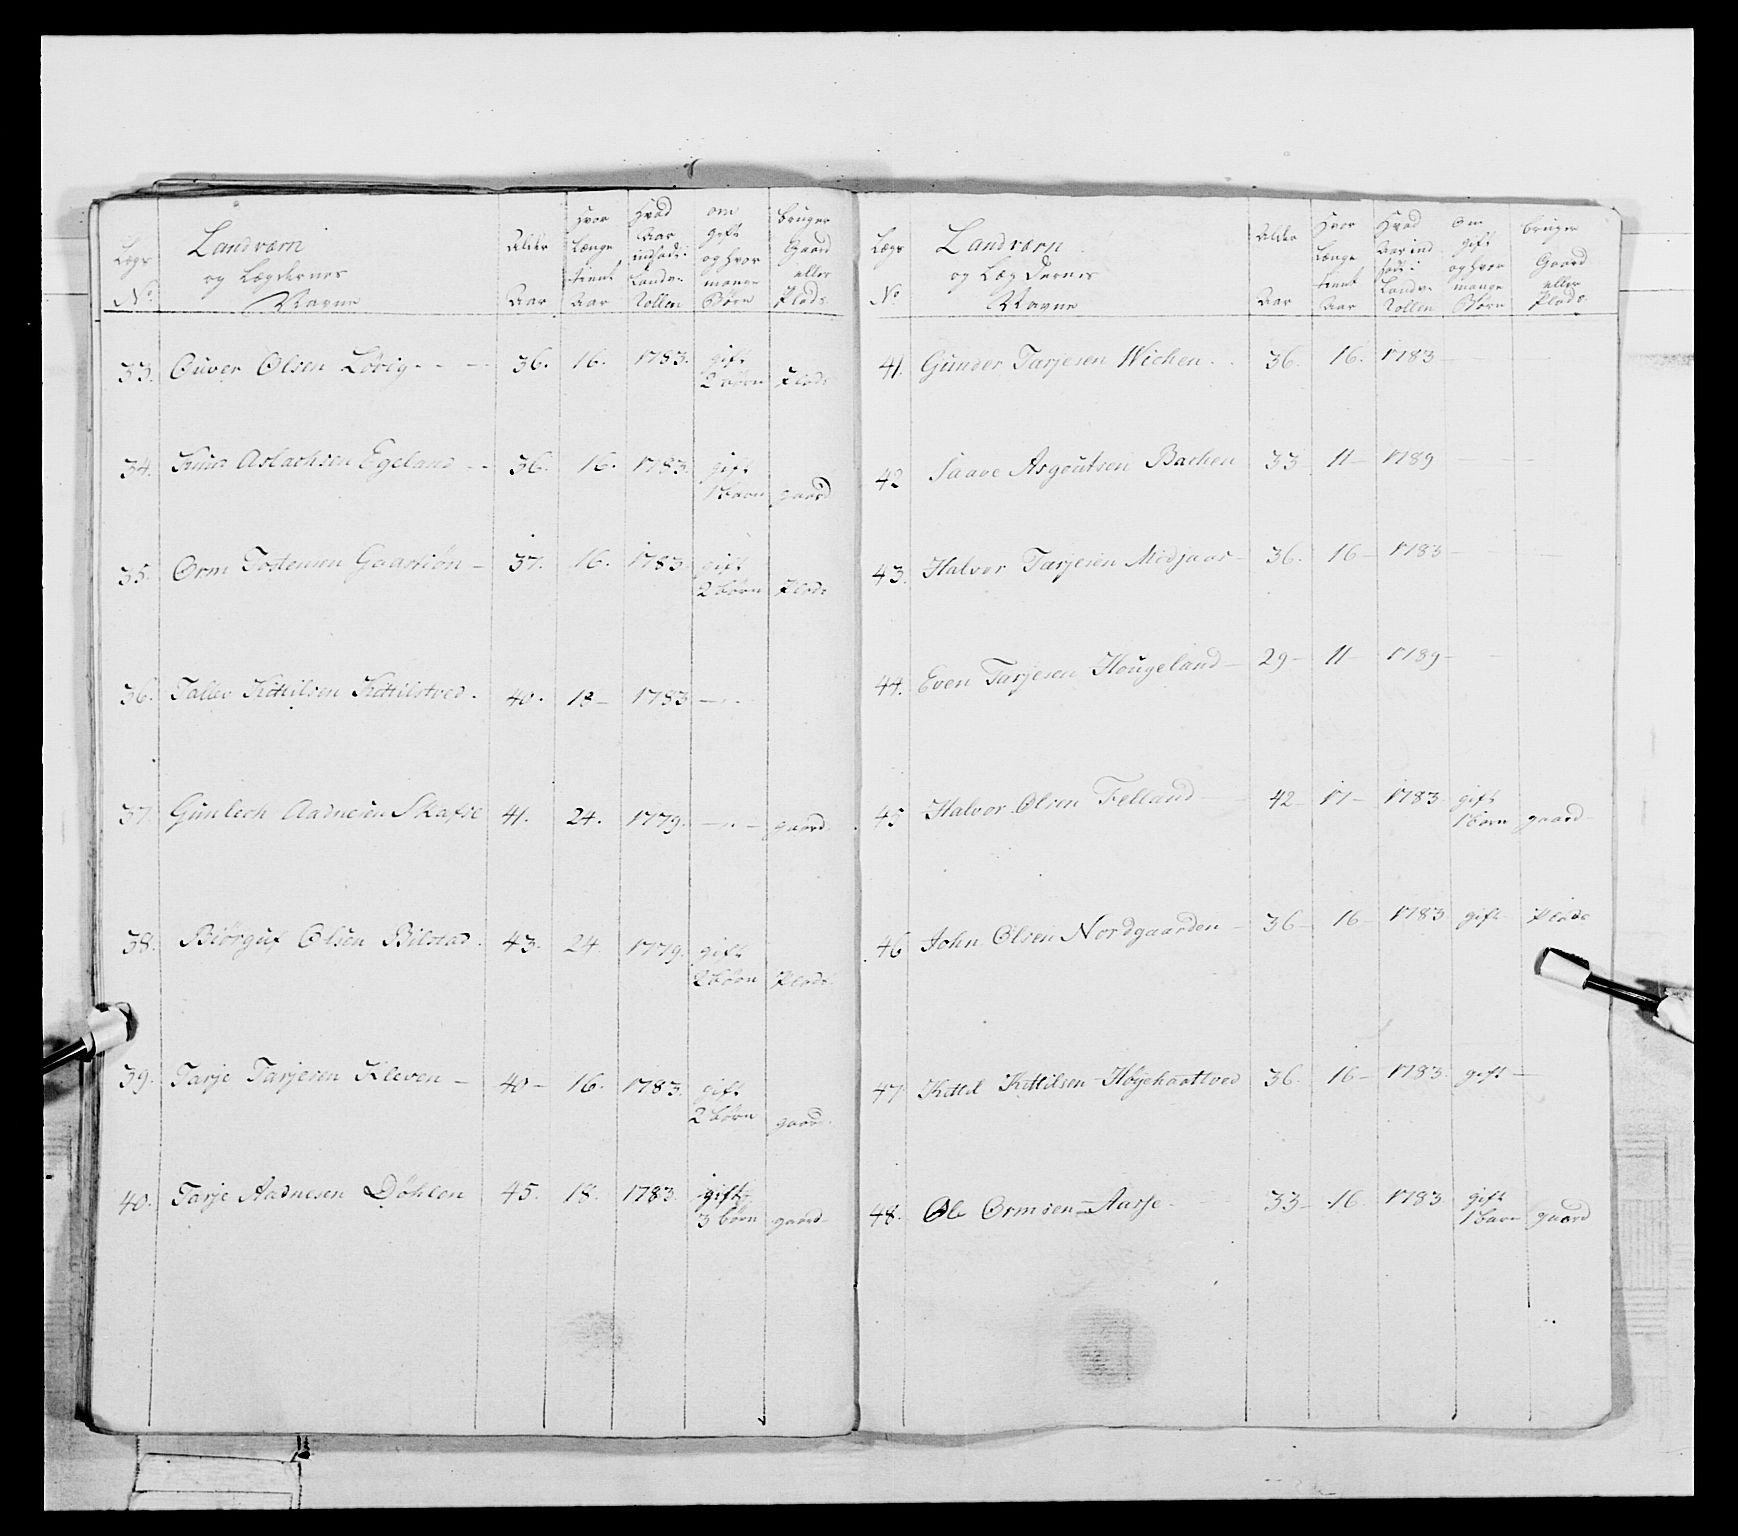 Lægs No | Landværn og Lægdernes Navne | Alder Aar | Hvor Længe tient Aar | Hvad Aar indsadt i Landv: Rollen | om gift og hvor mange Børn | bruger Gaard eller Plads
33. Ouver Olsen Løvig - - - 36. 16. 1783. gift
2 børn Plads
34. Knud Aslachsen Egeland - - 36. 16. 1783. gift
1 barn gaard
35. Orm Tostensen - 37. 16. 1783. gift
2 børn Plads
36. Tallev Kittilsen Kittilstved. 40. 18 - 1783 - - -
37. Gunlech Aadnesen Skafse 41. 24. 1779. - " - gaard.
38. Biørguf Olsen Bilstad. 43. 24. 1779. gift
2 børn Plads.
39. Tarje Tarjesen Kleven - 40 - 16. 1783. gift
2 børn gaard.
40. Tarje Aadnesen Døhlen 45. 18. 1783. gift
3 børn gaard -
Lægs No | Landværn og Lægdernes Navne | Alder Aar | Hvor Længe tient Aar | Hvad Aar indsadt i Landv: Rollen | Om gift og hvor mange Børn | bruger Gaard eller Plads.
41. Gunder Tarjesen Wichen. . 36. 16. 1783 - -
42 Saave Asgoutsen Bachen 33 11 - 1789 - -
43. Halvor Tarjesen Midjaas - 36. 16 - 1783 - -
44. Even Tarjesen Hougeland - 29 - 11 - 1789 - -
45 Halvor Olsen Felland - 42 - 17 - 1783. gift
1 barn gaard -
46 John Olsen Nordgaarden - 36 - 16 - 1783 gift - Plads
47 Kittil Kittilsen Høgehaattved 36. 16 - 1783. gift -
48. Ole Ormsen - Aasse - 33 - 16. 1783. gift
1 barn gaard